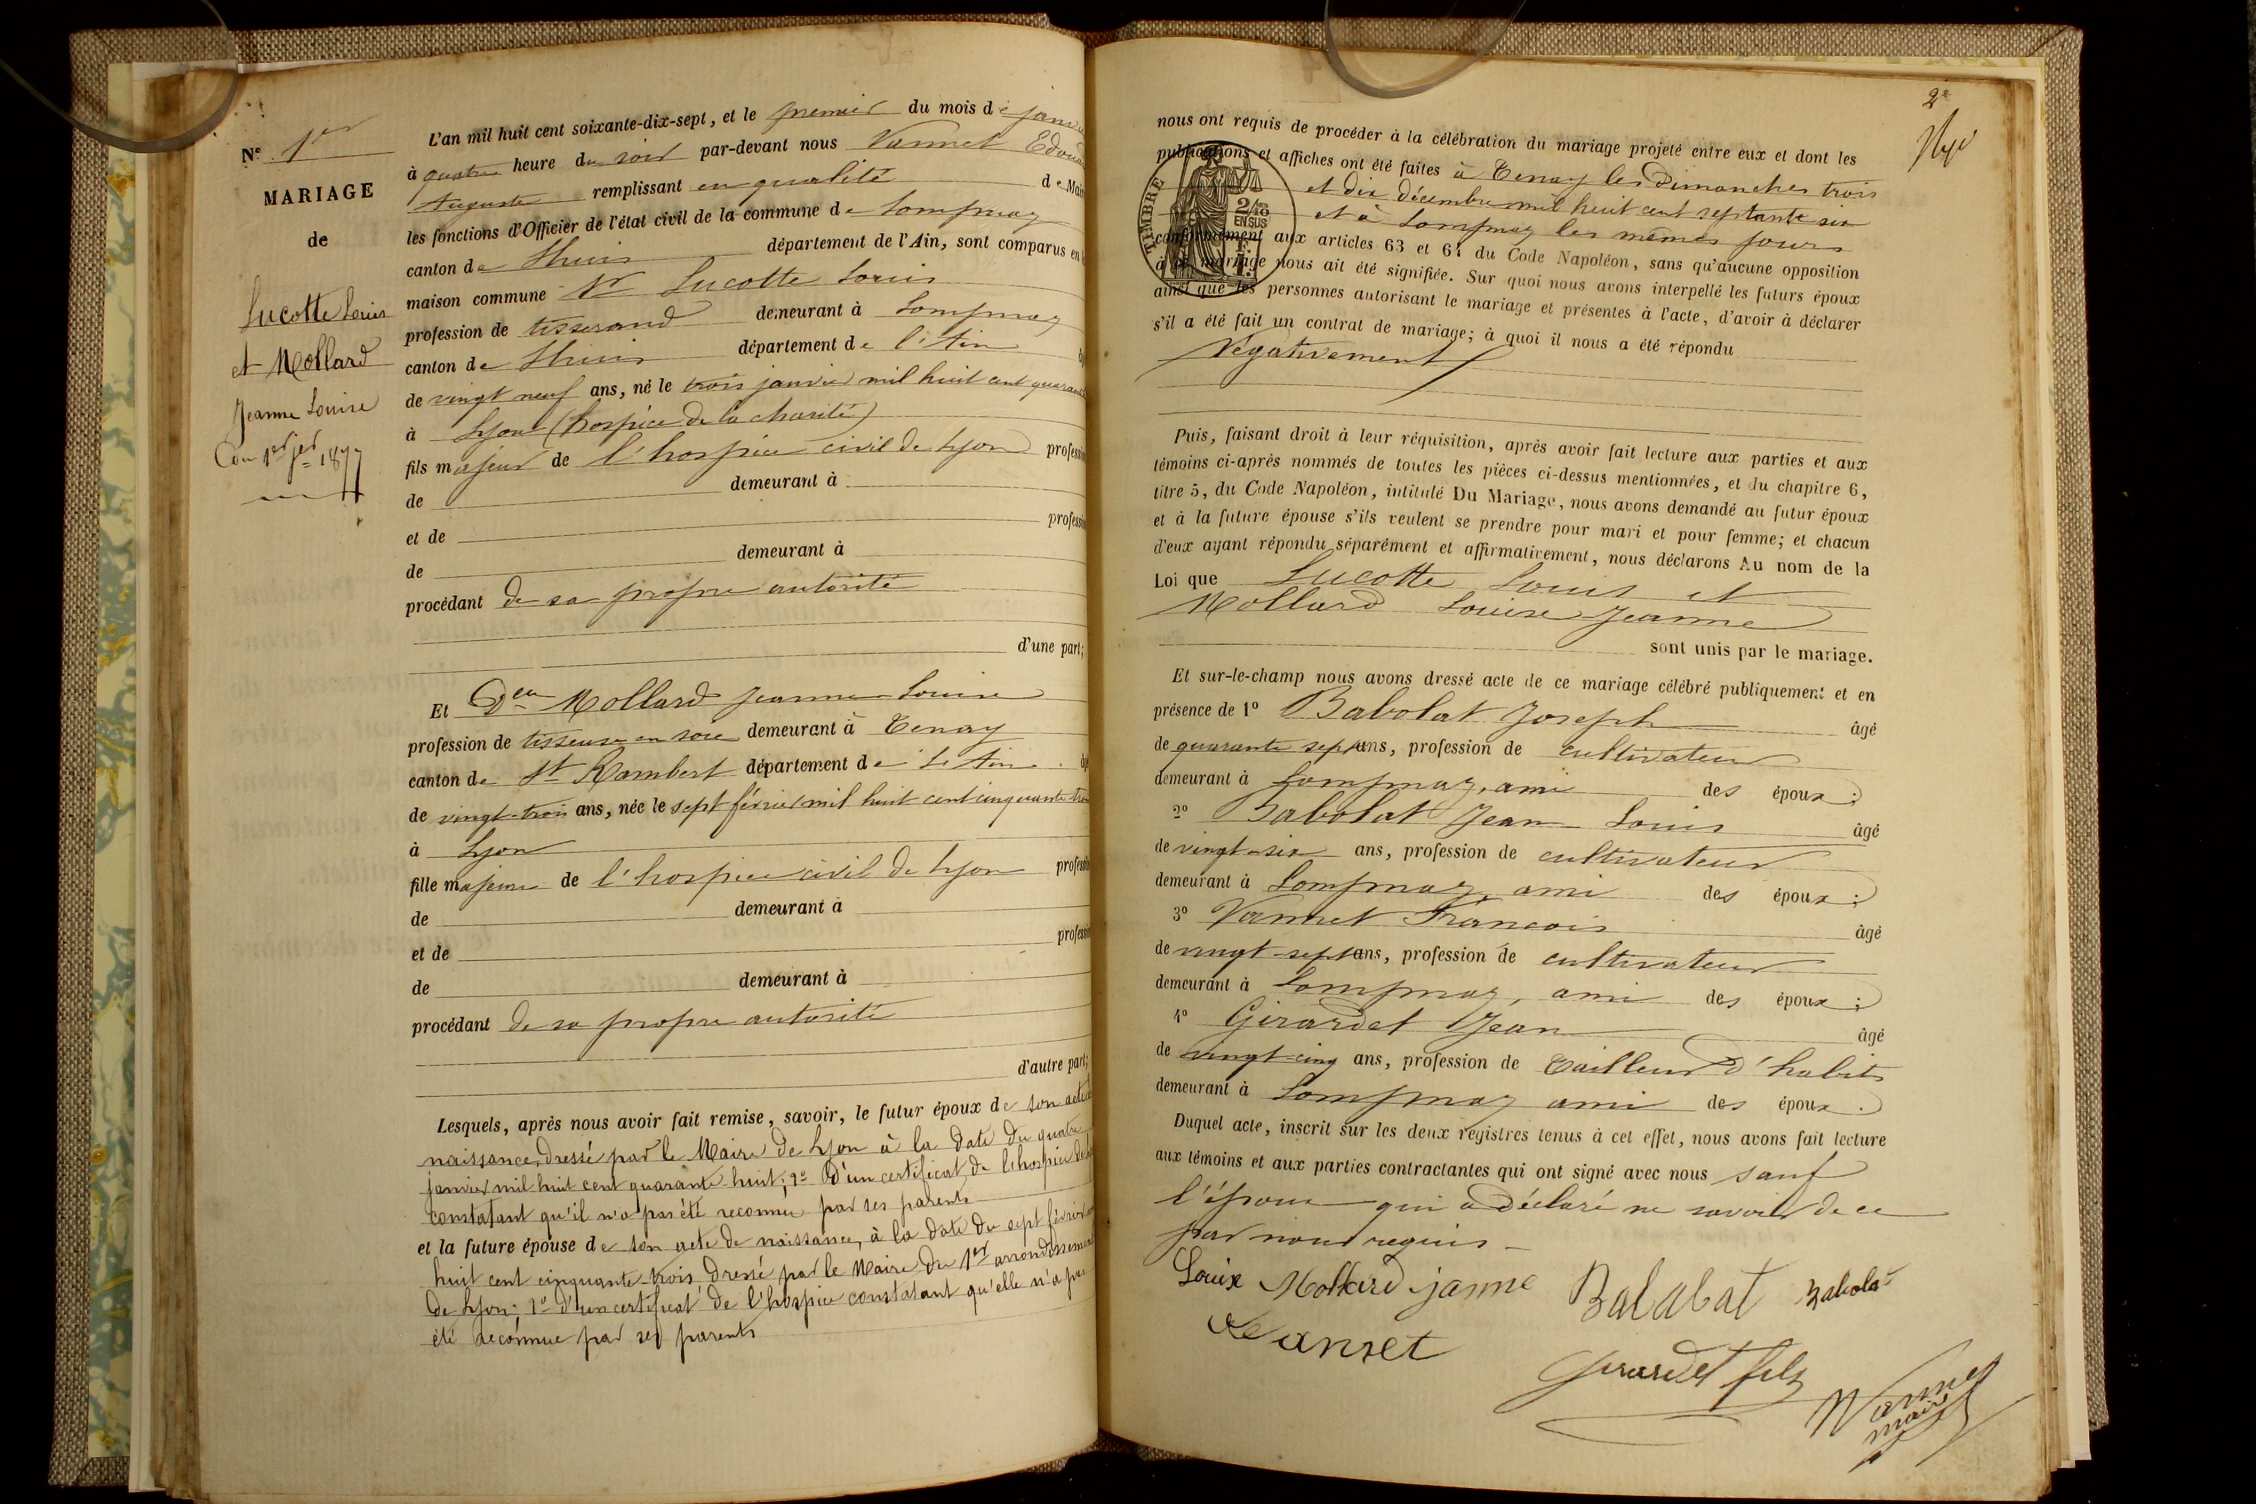 N° 1er
MARIAGE
de
Lucotte Louis
et Mollard
Jeanne Louise
Du 1er jer 1877
L'an mil huit cent soixante-dix-sept, et le premier du mois de janv
à quatre heure du soir par-devant nous Vannet Edoua
Auguste remplissant en qualité de Mair
les fonctions d'Officier de l'état civil de la commune de Lompnaz
canton de Lhuis département de l'Ain, sont comparus en l
maison commune Sr Lucotte Louis
profession de tisserand demeurant à Lompnaz
canton de Lhuis département de l'Ain
de vingt neuf ans, né le trois janvier mil huit cent quarant
à Lyon (hospice de la charité)
fils majeur de l'hospice civil de Lyon professi
de demeurant à
et de professi
de demeurant à
procédant de sa propre autorité
d'une part;
Et Delle Mollard Jeanne Louise
profession de tisseuse en soie demeurant à Tenay
canton de St Rambert département de L'Ain
de vingt-trois ans, née le sept février mil huit cent cinquante trois
à Lyon
fille majeure de l'hospice civil de Lyon professi
de demeurant à
et de professi
de demeurant à
procédant de sa propre autorité
d'autre part;
Lesquels, après nous avoir fait remise, savoir, le futur époux de son acte de
naissance, dressé par le Maire de Lyon à la date du quatre
janvier mil huit cent quarante-huit; 2° D'un certificat de l'hospice
constatant qu'il n'a pas été reconnu par ses parents
et la future épouse de son acte de naissance, à la date du sept février
huit cent cinquante-trois dressé par le Maire du 1er arrondissement
de Lyon; 2° d'un certificat de l'hospice constatant qu'elle n'a pas
été reconnue par ses parents
2e
nous ont requis de procéder à la célébration du mariage projeté entre eux et dont les
publications et affiches ont été faites à Tenay les Dimanches trois
et dix décembre mil huit cent septante six
et à Lompnaz les mêmes jours
conformément aux articles 63 et 64 du Code Napoléon, sans qu'aucune opposition
à ce mariage nous ait été signifiée. Sur quoi nous avons interpellé les futurs époux
ainsi que les personnes autorisant le mariage et présentes à l'acte, d'avoir à déclarer
s'il a été fait un contrat de mariage; à quoi il nous a été répondu
Négativement
TIMBRE
2/10
EN SUS
1 F.
Puis, faisant droit à leur réquisition, après avoir fait lecture aux parties et aux
témoins ci-après nommés de toutes les pièces ci-dessus mentionnées, et du chapitre 6,
titre 5, du Code Napoléon, intitulé Du Mariage, nous avons demandé au futur époux
et à la future épouse s'ils veulent se prendre pour mari et pour femme; et chacun
d'eux ayant répondu séparément et affirmativement, nous déclarons Au nom de la
Loi que Lucotte Louis et
Mollard Louise Jeanne
sont unis par le mariage.
Et sur-le-champ nous avons dressé acte de ce mariage célébré publiquement et en
présence de 1° Babolat Joseph âgé
de quarante sept ans, profession de cultivateur
demeurant à Lompnaz, ami des époux;
2° Babolat Jean Louis âgé
de vingt-six ans, profession de cultivateur
demeurant à Lompnaz, ami des époux;
3° Vannet François âgé
de vingt-sept ans, profession de cultivateur
demeurant à Lompnaz, ami des époux;
4° Girardet Jean âgé
de vingt-cinq ans, profession de Tailleur d'habits
demeurant à Lompnaz ami des époux.
Duquel acte, inscrit sur les deux registres tenus à cet effet, nous avons fait lecture
aux témoins et aux parties contractantes qui ont signé avec nous sauf
l'époux qui a déclaré ne savoir de ce
par nous requis
Louise Mollard janne Balabat Babolat
Vannet
Girardet fils
Vannet
maire